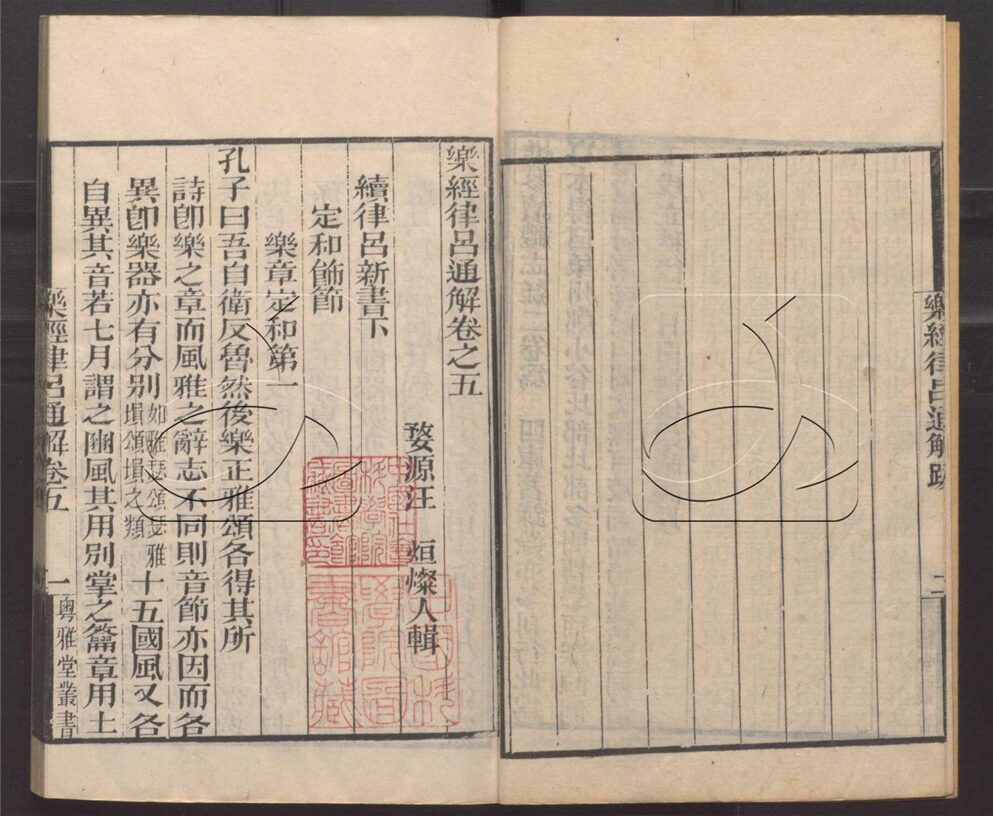 樂經律呂通解跋
二
樂經律呂通解卷之五
婺源汪 烜燦人輯
續律呂新書下
定和篩節
樂章定和第一
孔子曰吾自衛反魯然後樂正雅頌各得其所
詩卽樂之章而風雅之辭志不同則音節亦因而各
異卽樂器亦有分别如雅瑟頌瑟雅塤頌塤之類十五國風又各
自異其音若七月謂之豳風其用别掌之籥章用土
樂經律呂通解卷五
一
粵雅堂叢書